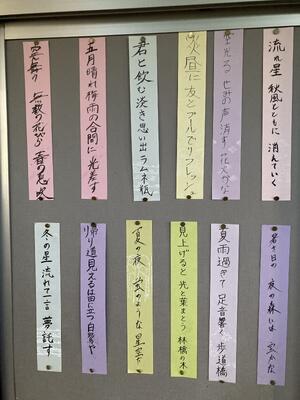 流れ星 秋風とともに 消えていく
星光る せみの声消す 花火かな
炎昼に 友とプールでリフレッシュ
君と飲む 淡き思い出 ラムネ瓶
五月晴れ 梅雨の合間に 光差す
春の息吹
暑き日の 夜の森には 宝かな
夏雨過ぎて 足音響く 歩道橋
見上げると 光と葉まとう 林檎の木
夏の夜 宝のような 星空
帰り道 見えるは田に立つ 白鷺や
冬の星 流れて一言 夢託す